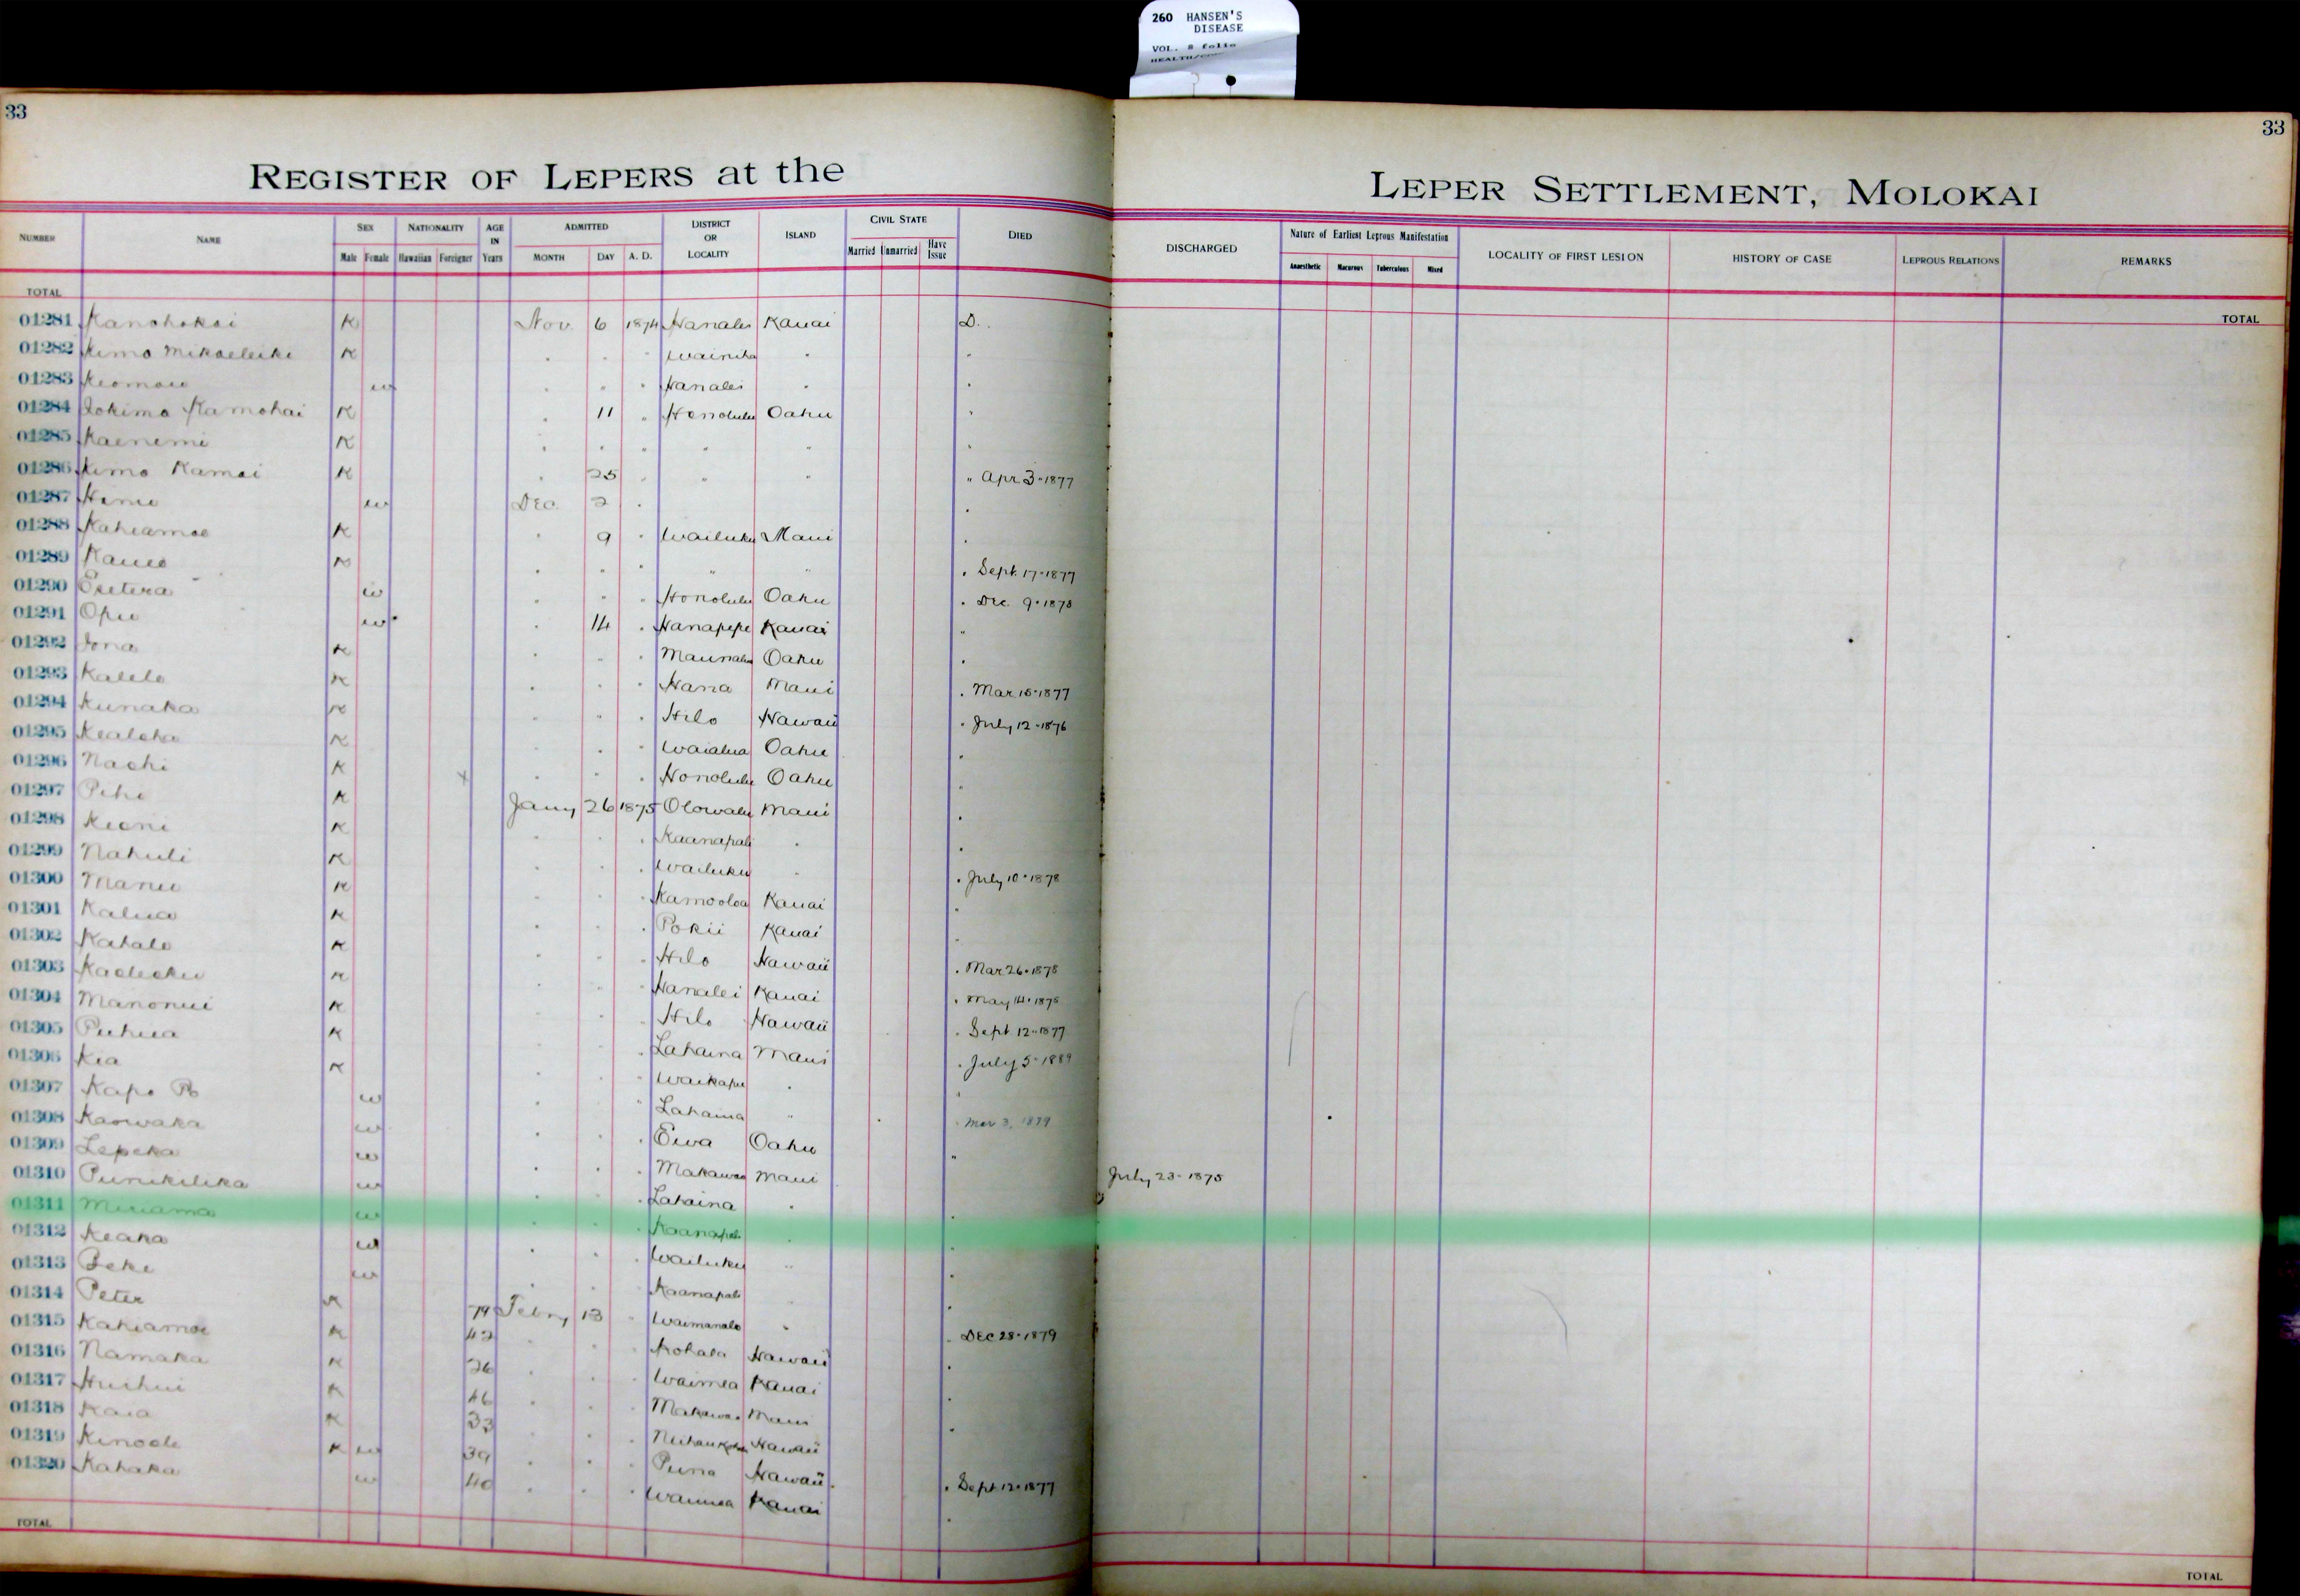 260 HANSEN'S
DISEASE
VOL. 8 folio
33 33
REGISTER OF LEPERS at the LEPER SETTLEMENT, MOLOKAI
NUMBER NAME SEX Male Female NATIONALITY Hawaiian Foreigner AGE IN Years ADMITTED MONTH DAY A. D. DISTRICT OR LOCALITY ISLAND CIVIL STATE Married Unmarried Have Issue DIED DISCHARGED Nature of Earliest Leprous Manifestation Anaesthetic Macurous Tuberculous Mixed LOCALITY OF FIRST LESION HISTORY OF CASE LEPROUS RELATIONS REMARKS
TOTAL TOTAL
01281 Kanohokai K Nov. 6 1874 Hanalei Kauai D.
01282 Kimo Mikaeleiki K " " " Wainiha " "
01283 Keomaio w " " " Hanalei " "
01284 Iokimo Kamohai K " 11 " Honolulu Oahu "
01285 Kaenemi K " " " " " "
01286 Kimo Kamai K " 25 " " " " Apr 3-1877
01287 Hime w Dec. 2 " "
01288 Kahiamoe K " 9 " Wailuku Maui "
01289 Kaueo K " " " " " " Sept. 17-1877
01290 Esetera w " " " Honolulu Oahu " Dec. 9-1878
01291 Opu w " 14 " Hanapepe Kauai "
01292 Iona K " " " Maunalua Oahu "
01293 Kalelo K " " " Hana Maui " Mar 15-1877
01294 Kunaka K " " " Hilo Hawaii " July 12-1876
01295 Kealoha K " " " Waialua Oahu "
01296 Naohi K x " " " Honolulu Oahu "
01297 Pihi K Jany 26 1875 Olowalu Maui "
01298 Kieni K " " " Kaanapali " "
01299 Nahuli K " " " Wailuku " " July 10-1878
01300 Manu K " " " Kamooloa Kauai "
01301 Kalua K " " " Pokii Kauai "
01302 Kahalo K " " " Hilo Hawaii " Mar 26-1878
01303 Kaeleoku K " " " Hanalei Kauai " May 14-1875
01304 Manonui K " " " Hilo Hawaii " Sept 12-1877
01305 Puhua K " " " Lahaina Maui " July 5-1889
01306 Kia K " " " Waikapu " "
01307 Kapo Po w " " " Lahaina " " Mar 3, 1879
01308 Kaowaka w " " " Ewa Oahu "
01309 Lepeka w " " " Makawao Maui July 23-1875
01310 Punikilika w " " " Lahaina " "
01311 Miriama w " " " Kaanapali " "
01312 Keaka w " " " Wailuku " "
01313 Beke w " " " Kaanapali " "
01314 Peter K 79 Febry 13 " Waimanalo " " Dec 28-1879
01315 Kahiamoe K 42 " " " Kohala Hawaii "
01316 Namaka K 26 " " " Waimea Kauai "
01317 Huihui K 46 " " " Makawao Maui "
01318 Kaia K 33 " " " Hawaii
01319 Kinoole K w 39 " " " Puna Hawaii " Sept 12-1877
01320 Kahaka w 40 " " " Waimea Kauai "
TOTAL TOTAL